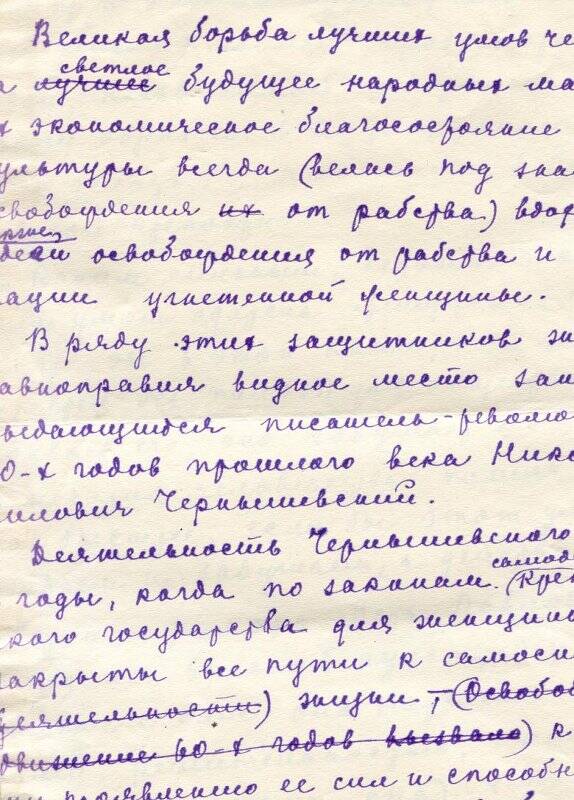 Великая борьба лучших умов че
светлое
а лучшее будущее народных ма
х экономическое благосостояние
ультуры всегда (велись под зна
свобождения их от рабства) вдо
деи освобождения от рабства и
ации угнетенной женщины.
В ряду этих защитников
авноправия видное место зан
ыдающийся писатель-револю
0-х годов прошлого века Нико
илович Чернышевский.
Деятельность Чернышевского
самод
годы, когда по законам (Кре
кого государства для женщины
закрыты все пути к самос
деятельности) жизни, (Освобо
движение 60-х годов вызвало) к
проявлению ее сил и способн